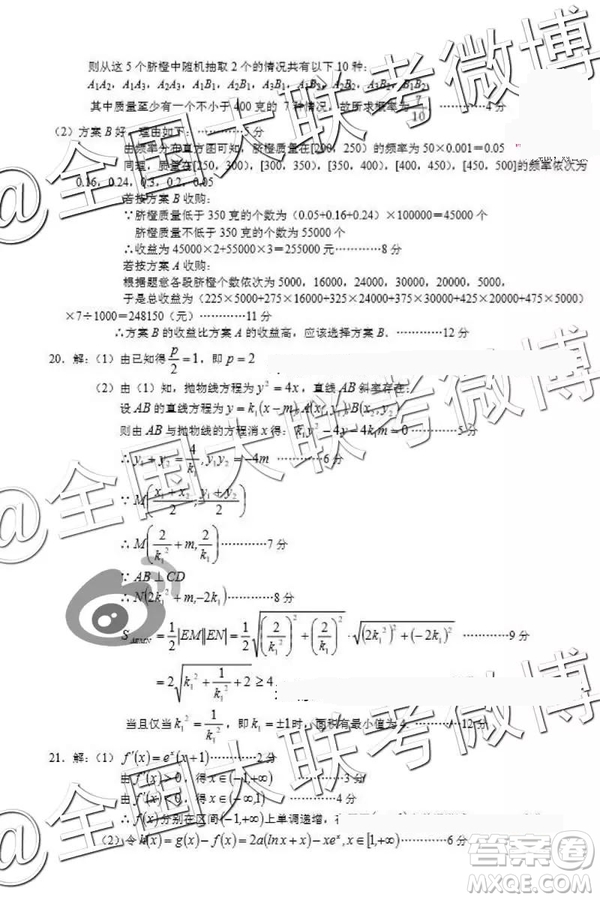 则从这 5 个脐橙中随机抽取 2 个的情况共有以下 10 种：
A₁A₂，A₁A₃，A₂A₃，A₁B₁，A₂B₁，A₃B₁，A₁B₂，A₂B₂，A₃B₂，B₁B₂
其中质量至少有一个不小于 400 克的 7 种情况，故所求概率为 7/10 …………4 分
（2）方案 B 好，理由如下：…………5 分
由频率分布直方图可知，脐橙质量在[200，250）的频率为 50×0.001＝0.05
同理，质量在[250，300），[300，350），[350，400），[400，450），[450，500]的频率依次为
0.16，0.24，0.3，0.2，0.05
若按方案 B 收购：
∵脐橙质量低于 350 克的个数为（0.05+0.16+0.24）×100000＝45000 个
脐橙质量不低于 350 克的个数为 55000 个
∴收益为 45000×2+55000×3＝255000 元…………8 分
若按方案 A 收购：
根据题意各段脐橙个数依次为 5000，16000，24000，30000，20000，5000
于是总收益为（225×5000+275×16000+325×24000+375×30000+425×20000+475×5000）
×7÷1000＝248150（元）…………11 分
∴方案 B 的收益比方案 A 的收益高，应该选择方案 B．…………12 分
20．解：（1）由已知得 p/2 = 1，即 p = 2
（2）由（1）知，抛物线方程为 y² = 4x，直线 AB 斜率存在，
设 AB 的直线方程为 y = k₁(x − m)，A(x₁, y₁)，B(x₂, y₂)
则由 AB 与抛物线的方程消 x 得：k₁y² − 4y − 4k₁m = 0…………5 分
∴ y₁ + y₂ = 4/k₁, y₁y₂ = −4m …………6 分
∵ M((x₁ + x₂)/2, (y₁ + y₂)/2)
∴ M(2/k₁² + m, 2/k₁)…………7 分
∵ AB ⊥ CD
∴ N(2k₁² + m, −2k₁)…………8 分
S△EMN = 1/2|EM||EN| = 1/2√((2/k₁²)² + (2/k₁)²) · √((2k₁²)² + (−2k₁)²) …………9 分
= 2√(k₁² + 1/k₁² + 2) ≥ 4.
当且仅当 k₁² = 1/k₁²，即 k₁ = ±1 时，面积有最小值为 4. …………12 分
21．解：（1） f′(x) = eˣ(x + 1)…………2 分
由 f′(x) > 0，得 x ∈ (−1,+∞) …………3 分
由 f′(x) < 0，得 x ∈ (−∞,1) …………4 分
∴ f(x) 分别在区间 (−1,+∞) 上单调递增，
（2）令 h(x) = g(x) − f(x) = 2a(ln x + x) − xeˣ, x ∈ [1,+∞)…………6 分
@全国大联考微博
@全国大联考微博
@全国大联考微博
答案圈
MXQE.COM